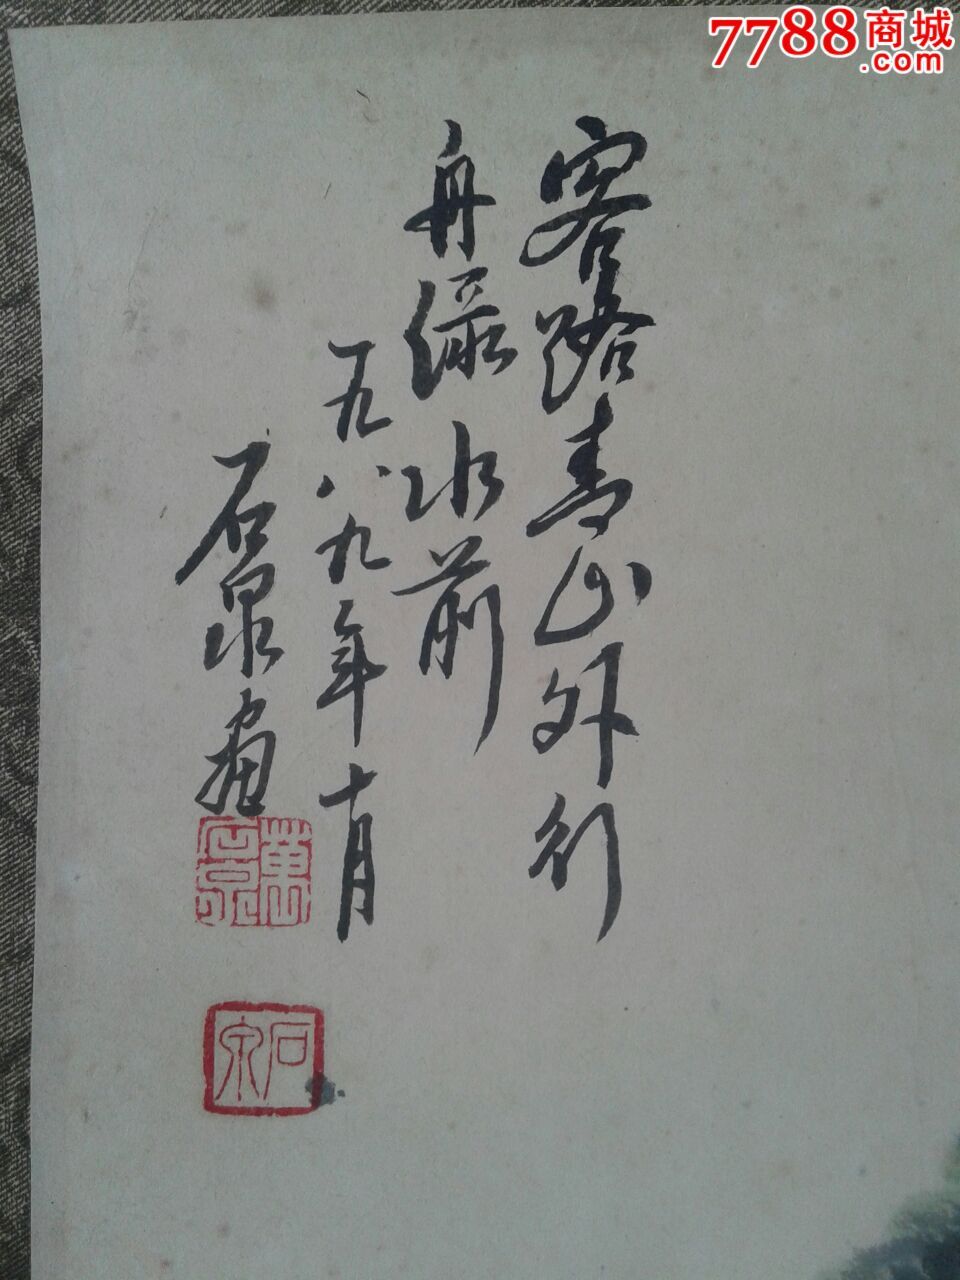 7788商城
.com
客路青山外行
舟绿水前
一九八九年十月
石泉画
石泉